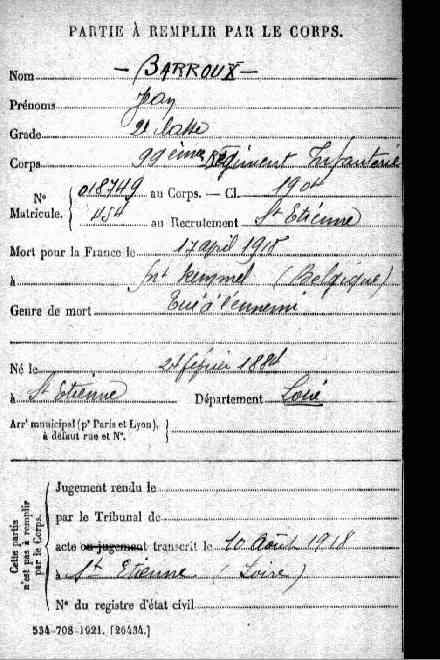 PARTIE À REMPLIR PAR LE CORPS.
Nom — BARROUX —
Prénoms Jean
Grade 2e classe
Corps 99ème Régiment Infanterie
N° Matricule. { 018749 au Corps. — Cl. 1904
454 au Recrutement St Etienne
Mort pour la France le 17 april 1918
à Mt Kemmel (Belgique)
Genre de mort Tué à l'ennemi
Né le février 1884
à St Etienne Département Loire
Arrt municipal (pr Paris et Lyon), à défaut rue et N°. }
Cette partie n'est pas à remplir par le Corps. {
Jugement rendu le
par le Tribunal de
acte ou jugement transcrit le 10 Août 1918
à St Etienne (Loire)
N° du registre d'état civil
534-708-1921. [26434.]